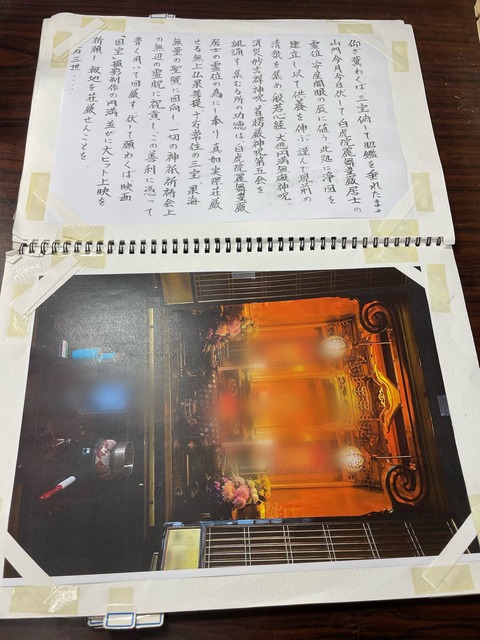 仰ぎ冀わくば三宝俯して照鑑を垂れたまえ
山門今月今日伏して白虎院麗舞曼厳居士の
霊位 字座開眼の辰に値う此処に浄図を
建立し以て供養を伸ぶ 謹んで現前の
清衆を集め 般若心経 大悲円満無礙神呪
消災妙吉祥神呪 首楞厳神呪第五会を
諷誦す 集むる所の功徳は 白虎院麗舞曼厳
居士の霊位の為にし奉り 真如実際荘厳
せる無上仏果菩提 十方常住の三宝 果海
無量の聖賢に回向し 一切の神祇祈祷会上
の無辺の霊貺に祝貢し この善利に憑って
普く用いて回厳す 伏して願わくば 映画
「国宝」撮影制作の円満 並びに大ヒット上映を
祈願し報地を荘厳せんことを
十方三世....